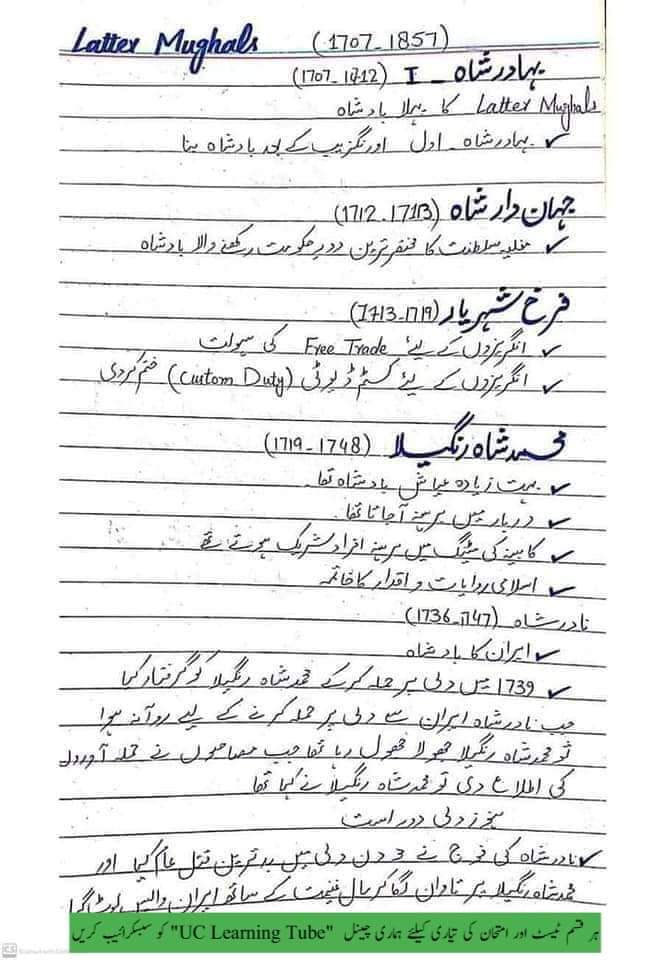 Latter Mughals (1707-1857)
بہادر شاہ - I (1707-1712)
Latter Mughals کا پہلا بادشاہ
✓ بہادر شاہ - اول اورنگزیب کے بعد بادشاہ بنا
جہان دار شاہ (1712-1713)
✓ مغلیہ سلطنت کا مختصر ترین دورِ حکومت رکھنے والا بادشاہ
فرخ شہریار (1713-1719)
✓ انگریزوں کے لیئے Free Trade کی سہولت
✓ انگریزوں کے لیئے کسٹم ڈیوٹی (Custom Duty) ختم کردی
محمد شاہ رنگیلا (1719-1748)
✓ بہت زیادہ عیاش بادشاہ تھا۔
✓ دربار میں برہنہ آجاتا تھا۔
✓ کابینہ کی میٹنگ میں برہنہ افراد شریک ہوتے تھے
✓ اسلامی روایات و اقدار کا خاتمہ
نادر شاہ (1736-1747)
✓ ایران کا بادشاہ
✓ 1739 میں دلی پر حملہ کرکے محمد شاہ رنگیلا کو گرفتار کیا
جب نادر شاہ ایران سے دلی پر حملہ کرنے کے لیے روانہ ہوا
تو محمد شاہ رنگیلا جھولا جھول رہا تھا جب مصاحبوں نے حملہ آوروں
کی اطلاع دی تو محمد شاہ رنگیلا نے کہا تھا
دلی دور است
✓ نادر شاہ کی فوج نے 3 دن دلی میں بدترین قتل عام کیا اور
محمد شاہ رنگیلا پر تاوان لگا کر مال غنیمت کے ساتھ ایران واپس لوٹ گیا
ہر قسم ٹیسٹ اور امتحان کی تیاری کیلئے ہماری چینل "UC Learning Tube" کو سبسکرائیب کریں
CS